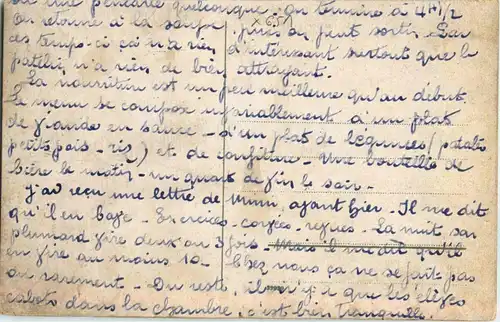 de une pancarte quelconque. On termine à 4H1/2
On retourne à la soupe, puis on peut sortir. Par
ces temps-ci ça n'a rien d'intéressant surtout que le
patelin n'a rien de bien attrayant.
La nourriture est un peu meilleure qu'au début.
Le menu se compose invariablement d'un plat
de viande en sauce - d'un plat de légumes (patates
petits pois, riz) et de confiture - Une bouteille de
bière le matin - un quart de vin le soir -
J'ai reçu une lettre de Mimi, avant hier. Il me dit
qu'il en bave - Exercices - corvées - revues - La nuit son
plumard vire deux ou 3 fois - Mais il me dit qu'il
en vire au moins 10
Chez nous ça ne se fait pas
ou rarement - Du reste, il n'y a que les élèves
cabots dans la chambre, c'est bien tranquille.